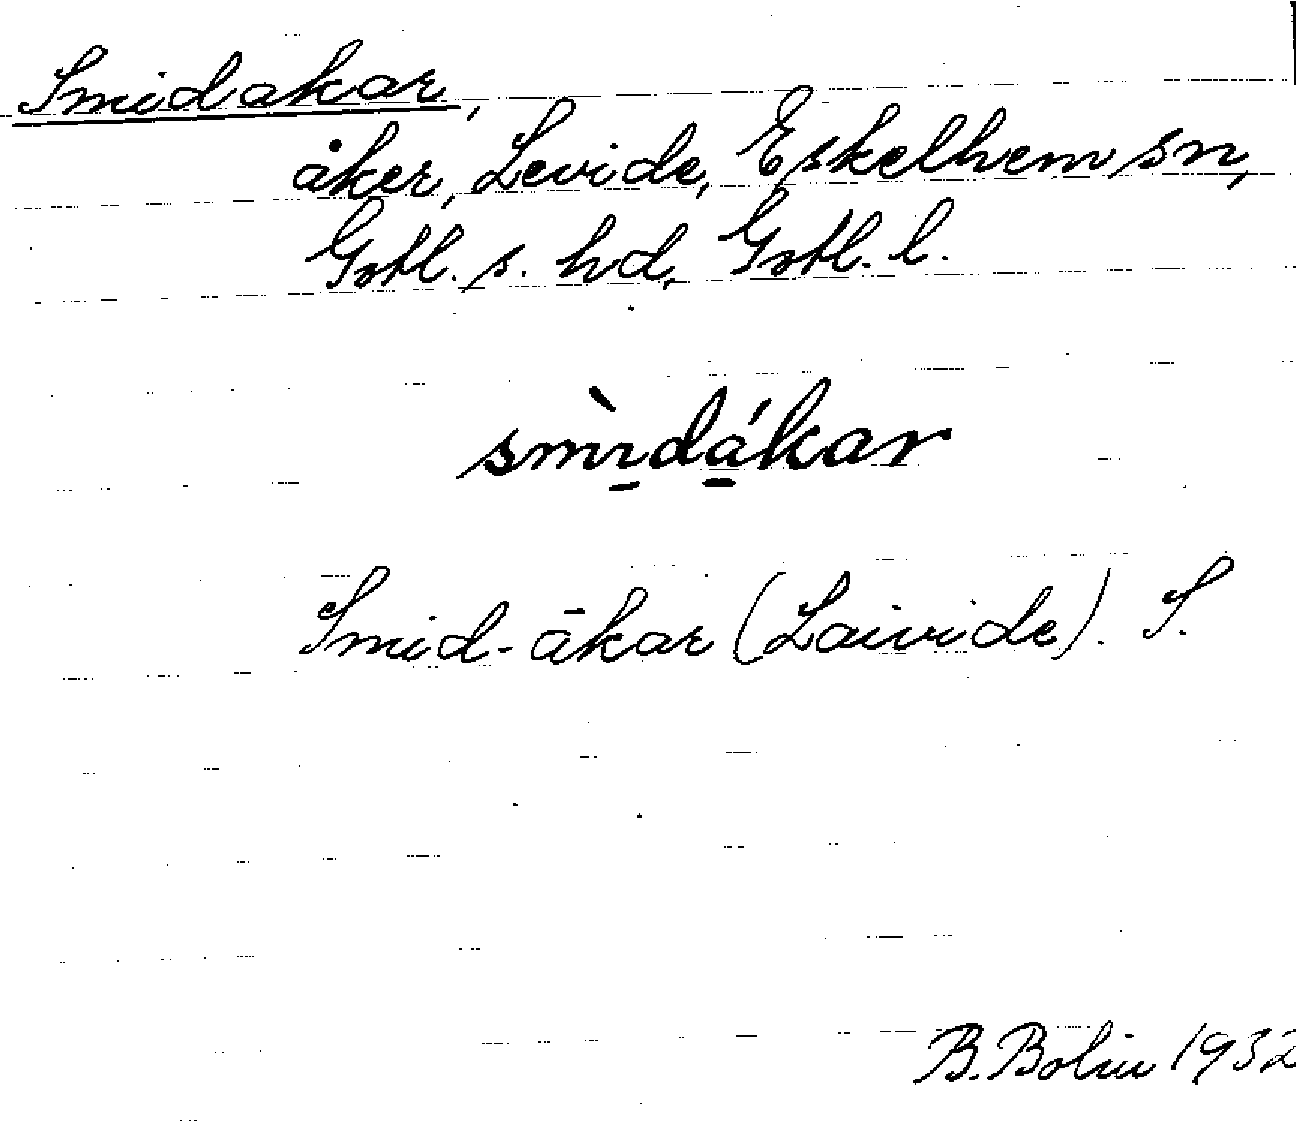 Smidakar,
åker, Levide, Eskelhem sn,
Gotl. s. hd, Gotl. l.
smı̱̀dá̱kar
Smid-ākar (Laivide). S.
B. Bolin 1932